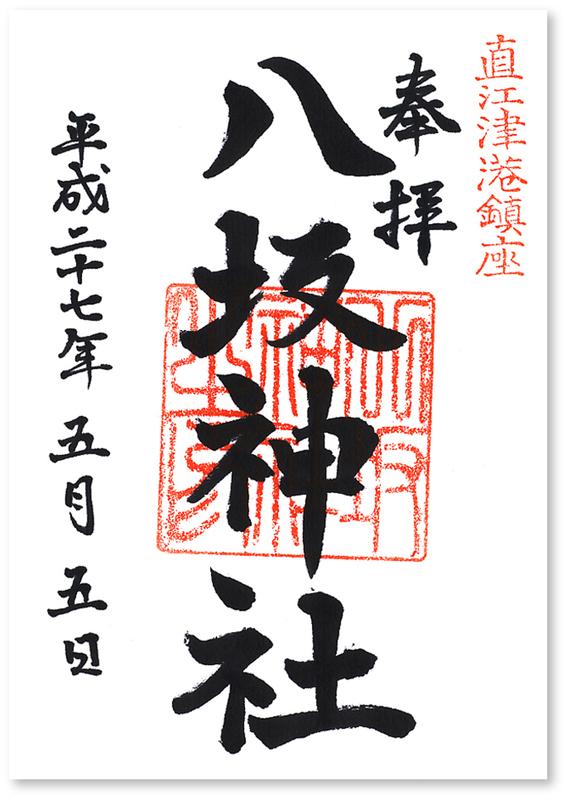 直江津港鎮座
奉拝
八坂神社
平成二十七年 五月 五日